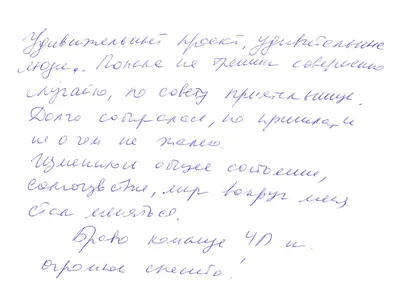 Удивительный проект, удивительные
люди. Попала на тренинг совершенно
случайно, по совету приятельницы.
Долго собиралась, но пришла, и
ни о чем не жалею.
Изменилось общее состояние,
самочувствие, мир вокруг меня
стал меняться.
Браво команде ЧП и
огромное спасибо!